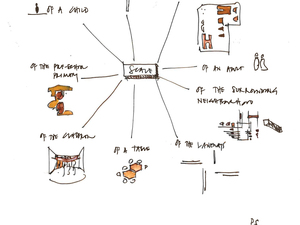 OF A CHILD
OF THE PRE-
PRIMARY
SCALE
OF AN ADULT
OF THE SURROUNDING
NEIGHBORHOOD
OF THE CLASSROOM
OF A TABLE
OF THE